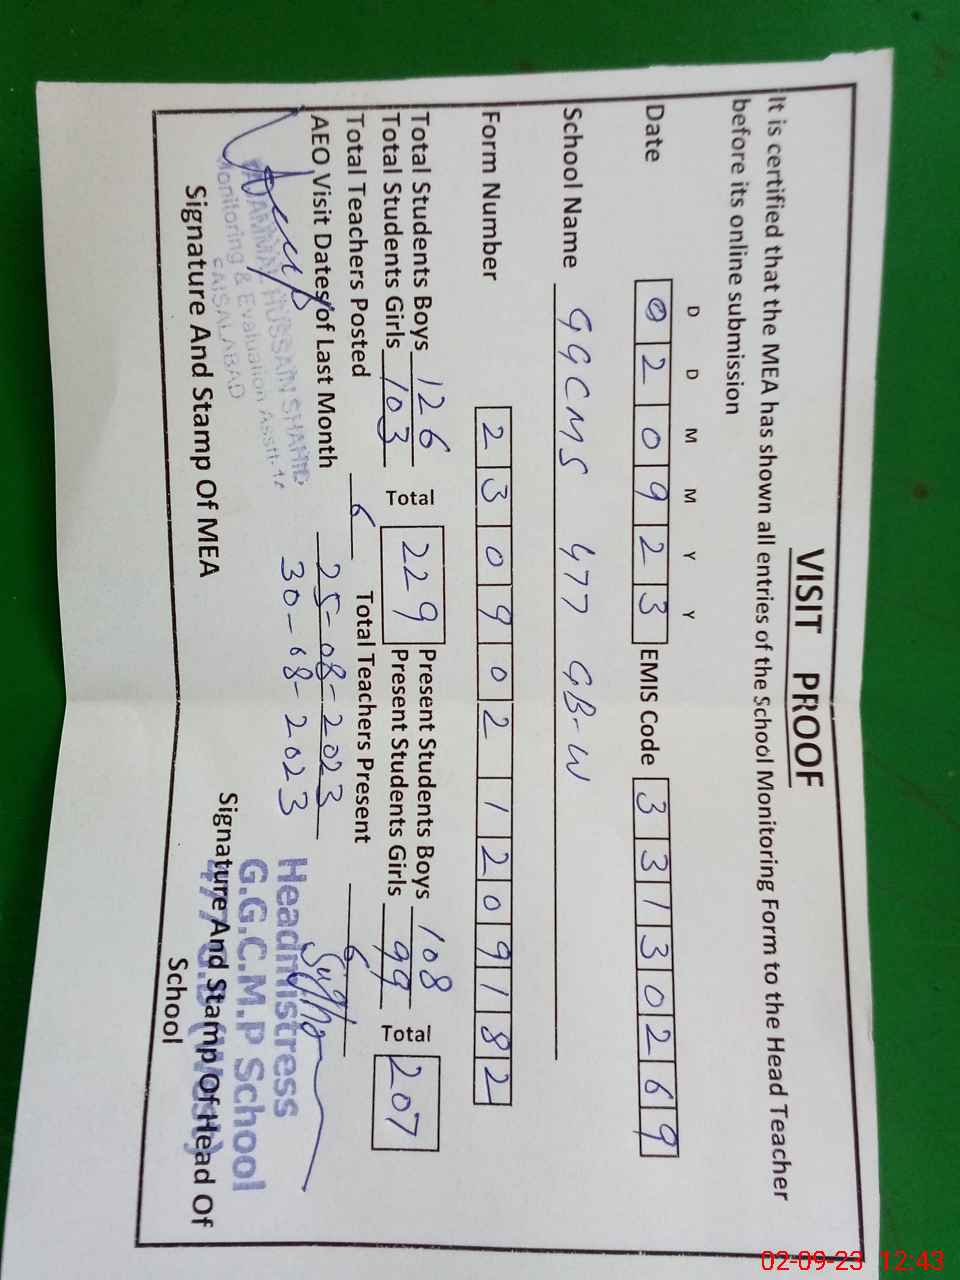 VISIT PROOF
It is certified that the MEA has shown all entries of the School Monitoring Form to the Head Teacher
before its online submission
D D M M Y Y
Date 0 2 0 9 2 3 EMIS Code 3 3 1 3 0 2 6 9
School Name GGCMS 477 GB-W
Form Number 2 3 0 9 0 2 1 2 0 9 1 8 2
Total Students Boys 126 Total 229 Present Students Boys 108 Total 207
Total Students Girls 103 Present Students Girls 99
Total Teachers Posted 6 Total Teachers Present 6
AEO Visit Dates of Last Month 25-08-2023
30-08-2023
HUSSAIN SHAHID
Monitoring & Evaluation Asstt-
FAISALABAD
Signature And Stamp Of MEA
Headmistress
G.G.C.M.P School
477 G.B (West)
Signature And Stamp Of Head Of
School
02-09-23 12:43